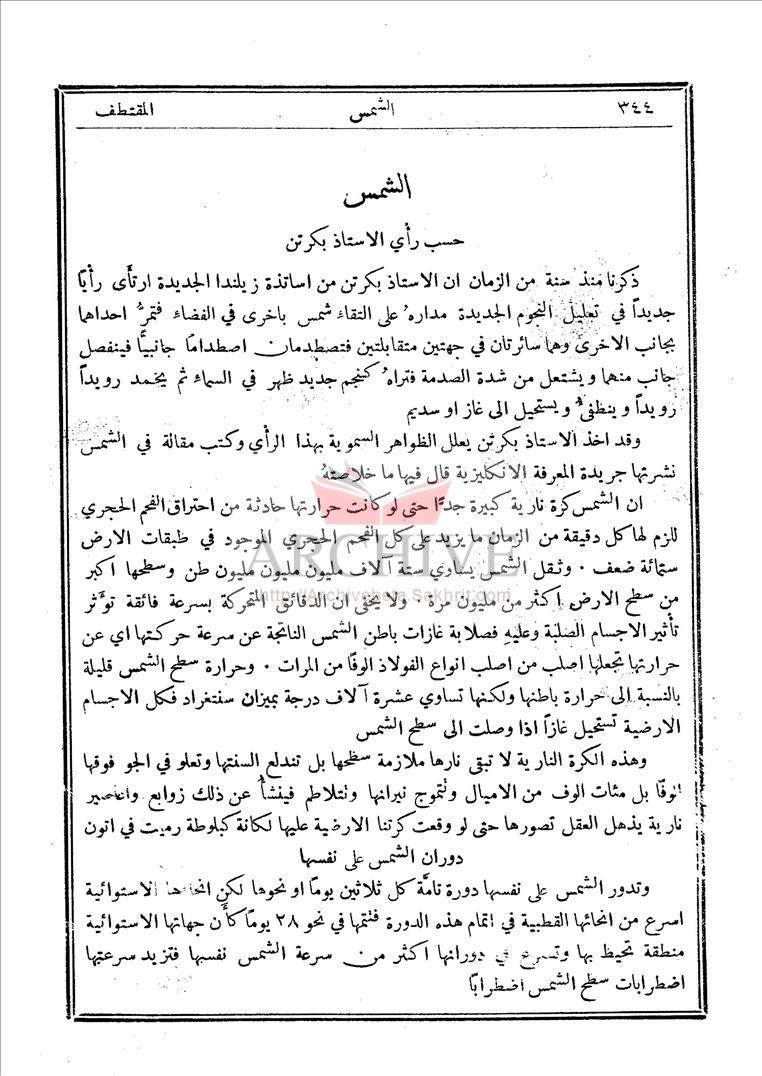 ٣٤٤ الشمس المقتطف
الشمس
حسب رأي الاستاذ بكرتن
ذكرنا منذ سنة من الزمان ان الاستاذ بكرتن من اساتذة زيلندا الجديدة ارتأى رأيًا
جديدًا في تعليل النجوم الجديدة مداره على التقاء شمس باخرى في الفضاء فتمرُّ احداهما
بجانب الاخرى وهما سائرتان في جهتين متقابلتين فتصطدمان اصطدامًا جانبيًا فينفصل
جانب منهما ويشتعل من شدة الصدمة فتراهُ كنجم جديد ظهر في السماء ثم يخمد رويدًا
رويدًا وينطفئ ويستحيل الى غاز او سديم
وقد اخذ الاستاذ بكرتن يعلل الظواهر السموية بهذا الرأي وكتب مقالة في الشمس
نشرتها جريدة المعرفة الانكليزية قال فيها ما خلاصتهُ
ان الشمس كرة نارية كبيرة جدًّا حتى لو كانت حرارتها حادثة من احتراق الفحم الحجري
للزم لها كل دقيقة من الزمان ما يزيد على كل الفحم الحجري الموجود في طبقات الارض
ستمائة ضعف . وثقل الشمس يساوي ستة آلاف مليون مليون مليون طن وسطحها اكبر
ARCHIVE
http://Archivebeta.Sakhrit.com
من سطح الارض اكثر من مليون مرة . ولا يخفى ان الدقائق المتحركة بسرعة فائقة تؤثر
تأثير الاجسام الصلبة وعليهِ فصلابة غازات باطن الشمس الناتجة عن سرعة حركتها اي عن
حرارتها تجعلها اصلب من اصلب انواع الفولاذ الوفًا من المرات . وحرارة سطح الشمس قليلة
بالنسبة الى حرارة باطنها ولكنها تساوي عشرة آلاف درجة بميزان سنتغراد فكل الاجسام
الارضية تستحيل غازًا اذا وصلت الى سطح الشمس
وهذه الكرة النارية لا تبقى نارها ملازمة سطحها بل تندلع السنتها وتعلو في الجو فوقها
الوفًا بل مئات الوف من الاميال وتتموج نيرانها وتتلاطم فينشأُ عن ذلك زوابع واعاصير
نارية يذهل العقل تصورها حتى لو وقعت كرتنا الارضية عليها لكانة كبلوطة رميت في اتون
دوران الشمس على نفسها
وتدور الشمس على نفسها دورة تامَّة كل ثلاثين يومًا او نحوها لكن انحاءها الاستوائية
اسرع من انحائها القطبية في اتمام هذه الدورة فتتمها في نحو ٢٨ يومًا كأَن جهاتها الاستوائية
منطقة تحيط بها وتسرع في دورانها اكثر من سرعة الشمس نفسها فتزيد سرعتها
اضطرابات سطح الشمس اضطرابًا